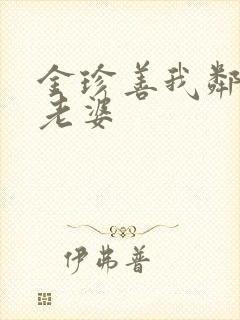 金珍善我鄰
老婆
伊弗普